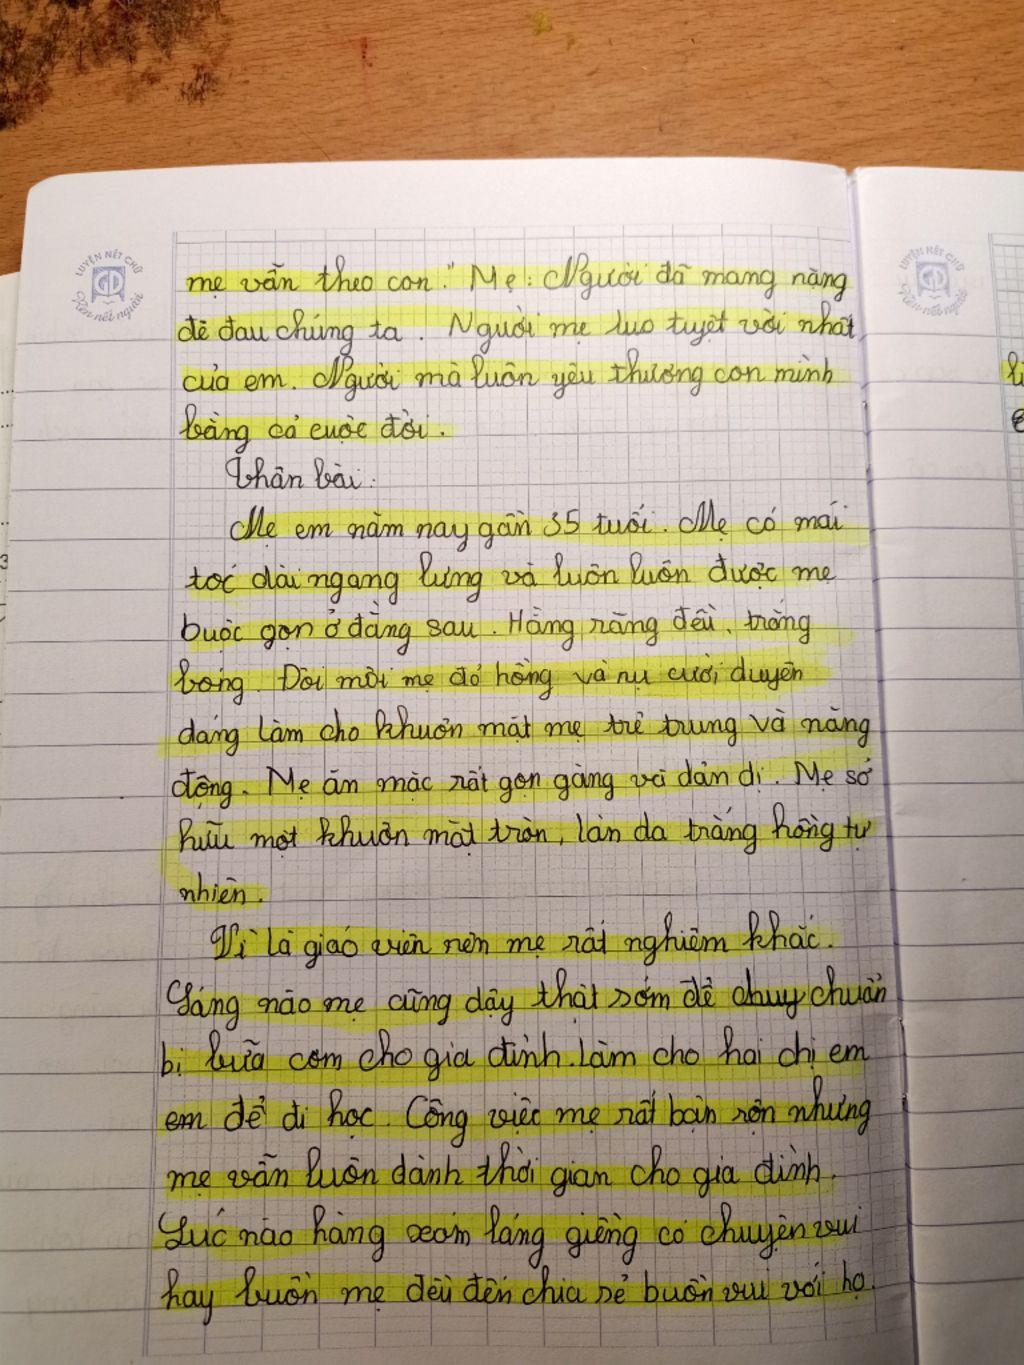 LUYỆN NẾT CHỮ
Rèn nết người
LUYỆN NẾT CHỮ
Rèn nết người
mẹ vẫn theo con." Mẹ: Người đã mang nặng
đẻ đau chúng ta. Người mẹ luo tuyệt vời nhất
của em. Người mà luôn yêu thương con mình
bằng cả cuộc đời.
Thân bài:
Mẹ em năm nay gần 35 tuổi. Mẹ có mái
tóc dài ngang lưng và luôn luôn được mẹ
buộc gọn ở đằng sau. Hằng răng đều, trắng
bóng. Đôi môi mẹ đỏ hồng và nụ cười duyên
dáng làm cho khuôn mặt mẹ trẻ trung và năng
động. Mẹ ăn mặc rất gọn gàng và dản dị. Mẹ sở
hữu một khuôn mặt tròn, làn da trắng hồng tự
nhiên.
Vì là giáo viên nên mẹ rất nghiêm khắc.
Sáng nào mẹ cũng dậy thật sớm để chuẩn
bị bữa cơm cho gia đình. Làm cho hai chị em
em để đi học. Công việc mẹ rất bận rộn nhưng
mẹ vẫn luôn dành thời gian cho gia đình.
Lúc nào hàng xóm láng giềng có chuyện vui
hay buồn mẹ đều đến chia sẻ buồn vui với họ.